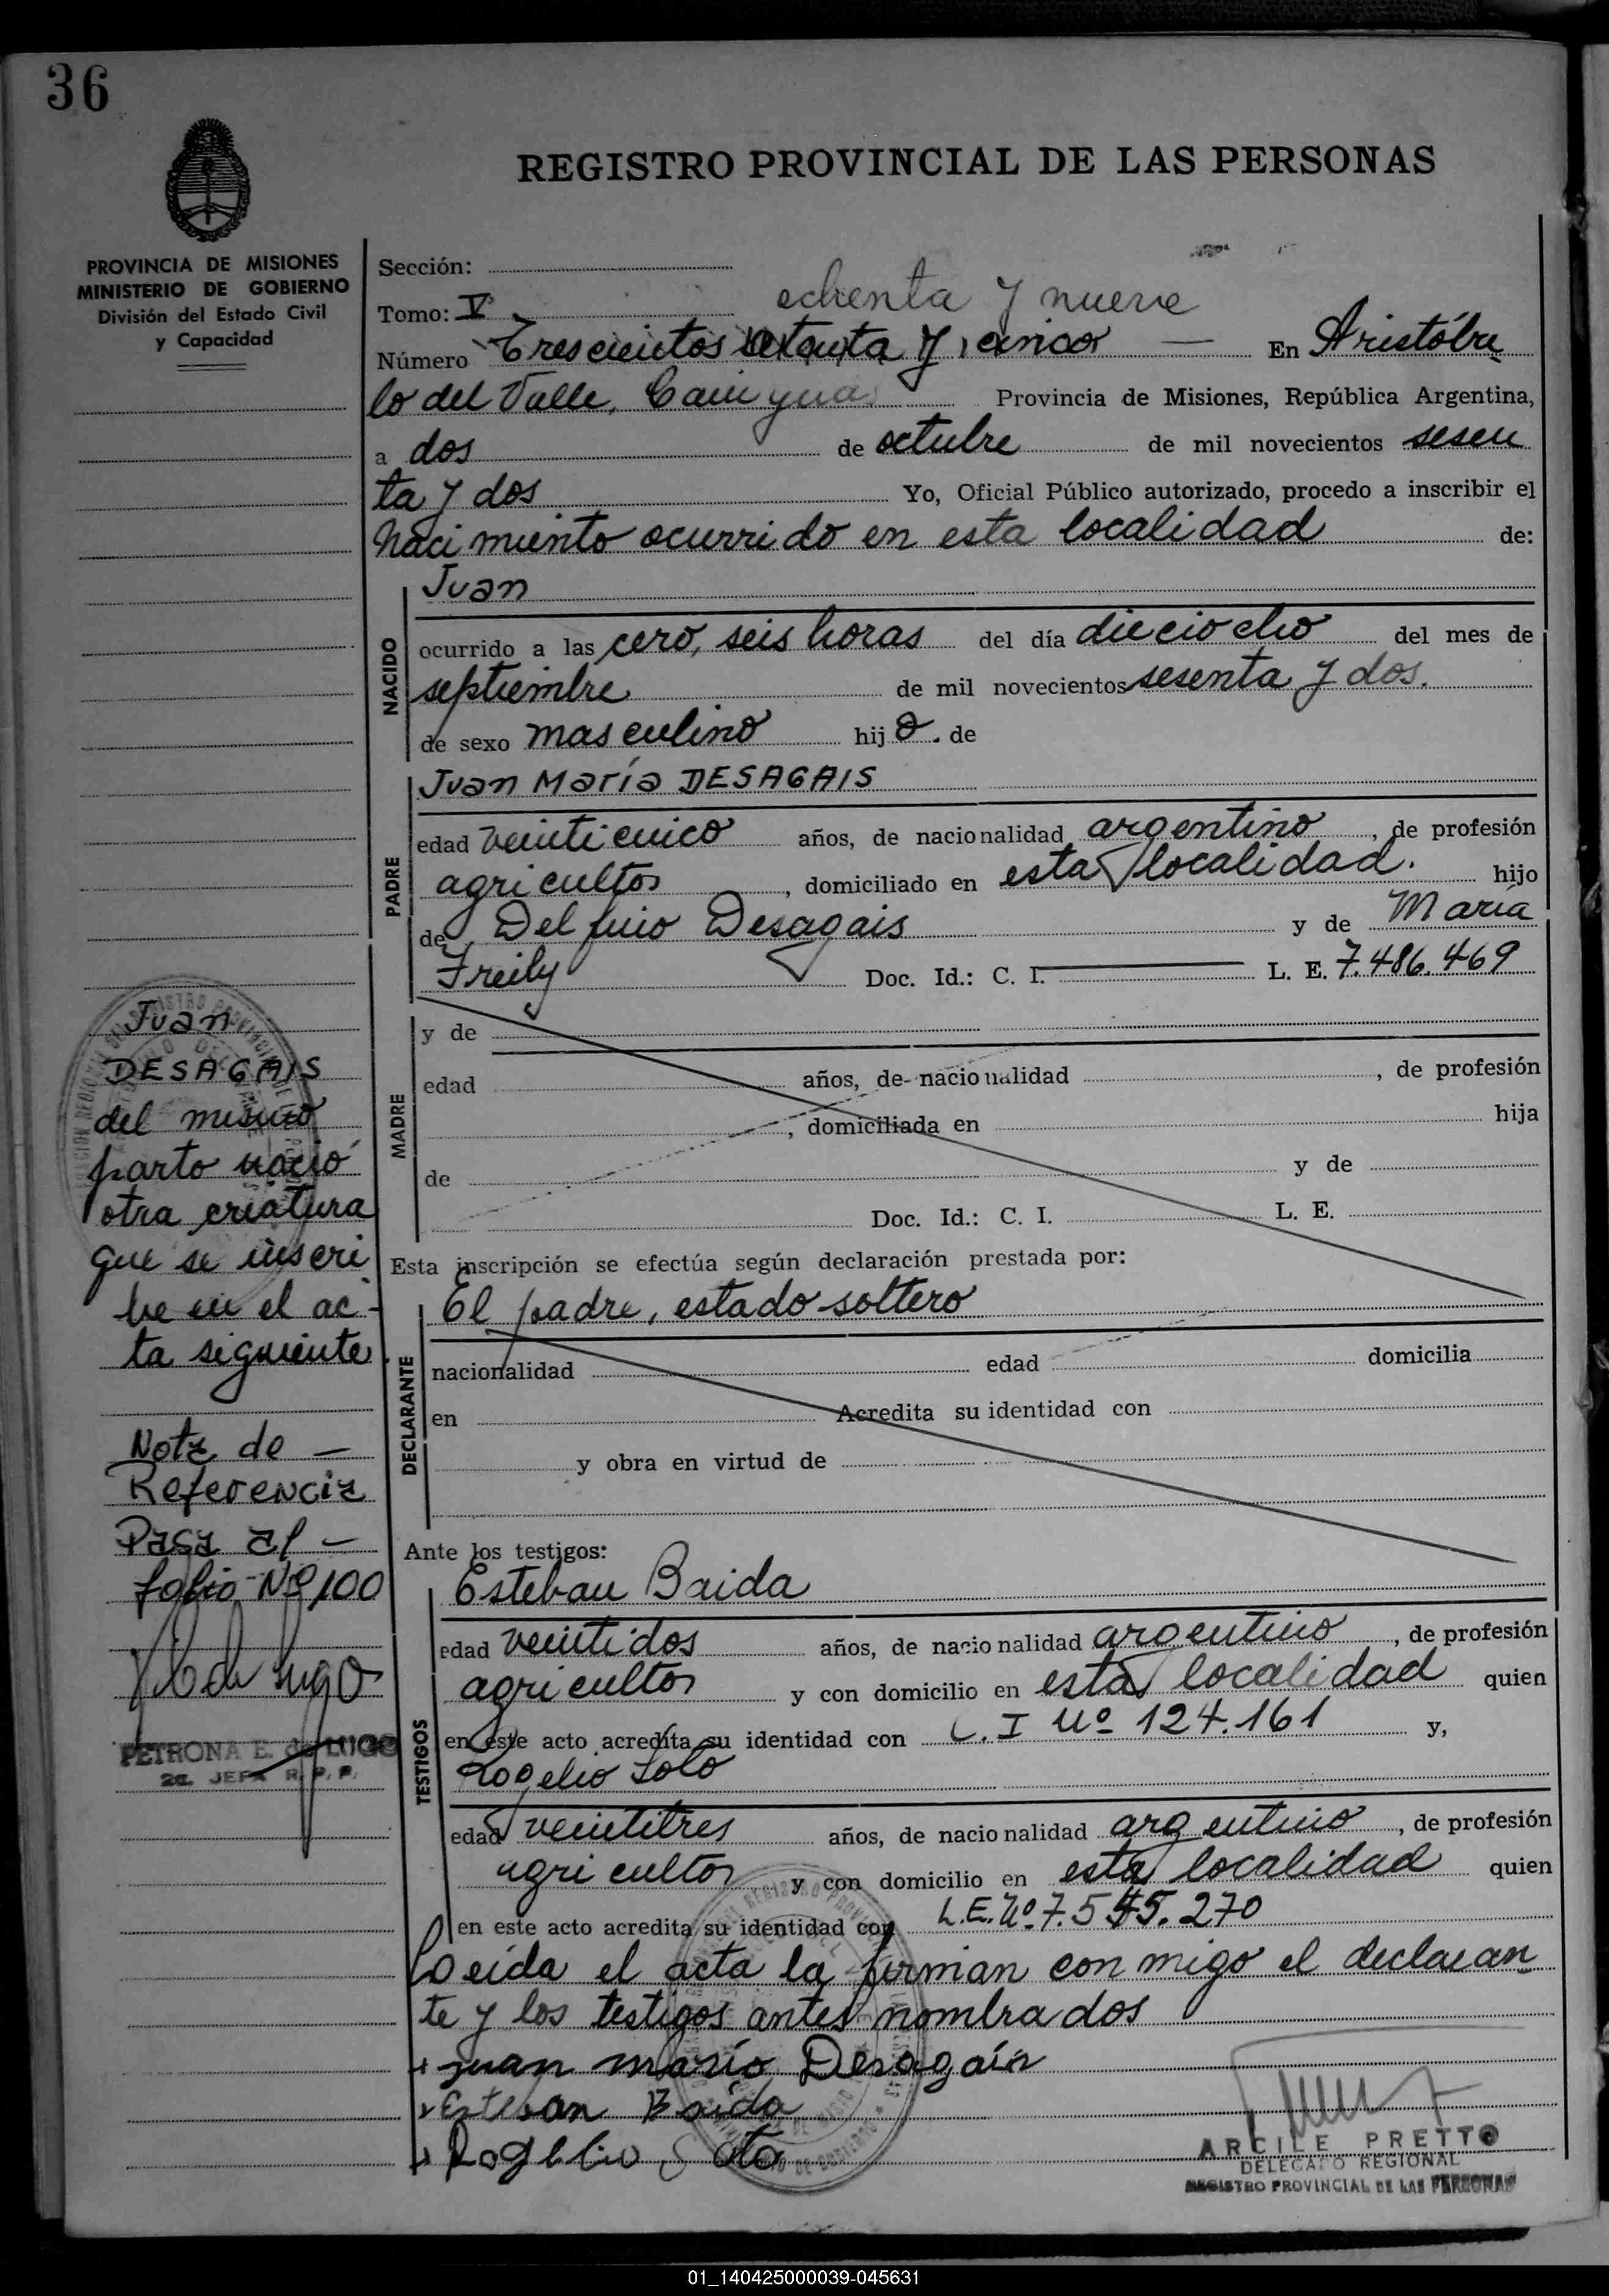 36
REGISTRO PROVINCIAL DE LAS PERSONAS
PROVINCIA DE MISIONES
MINISTERIO DE GOBIERNO
División del Estado Civil
y Capacidad
Sección:
Tomo: V
ochenta y nueve
Número Trescientos setenta y cinco En Aristóbu
lo del Valle, Cainguas Provincia de Misiones, República Argentina,
a dos de octubre de mil novecientos sesen
ta y dos Yo, Oficial Público autorizado, procedo a inscribir el
nacimiento ocurrido en esta localidad de:
NACIDO
Juan
ocurrido a las cero, seis horas del día dieciocho del mes de
septiembre de mil novecientos sesenta y dos.
de sexo masculino hijo. de
PADRE
Juan María DESAGAIS
edad veinticinco años, de nacionalidad argentino, de profesión
agricultor, domiciliado en esta localidad. hijo
de Delfino Desagais y de María
Freily Doc. Id.: C. I. L. E. 7.486.469
MADRE
y de
edad años, de nacionalidad , de profesión
, domiciliada en hija
de y de
Doc. Id.: C. I. L. E.
Esta inscripción se efectúa según declaración prestada por:
DECLARANTE
El padre, estado soltero
nacionalidad edad domicilia
en Acredita su identidad con
y obra en virtud de
Ante los testigos:
TESTIGOS
Esteban Baida
edad veintidos años, de nacionalidad argentino, de profesión
agricultor y con domicilio en esta localidad quien
en este acto acredita su identidad con C. I Nº 124.161 y,
Rogelio Soto
edad veintitres años, de nacionalidad argentino, de profesión
agricultor y con domicilio en esta localidad quien
en este acto acredita su identidad con L.E. Nº 7.545.270
Leída el acta la firman conmigo el declaran
te y los testigos antes nombrados
Juan mario Desagais
Esteban Baida
Rogelio Soto
ARCILE PRETTO
DELEGADO REGIONAL
REGISTRO PROVINCIAL DE LAS PERSONAS
Juan
DESAGAIS
del mismo
parto nació
otra criatura
que se inscri
be en el ac-
ta siguiente
Nota de —
Referencia
Pasa al —
folio Nº 100
PETRONA E. de LUGO
2a. JEFA R. P. P.
01_140425000039-045631